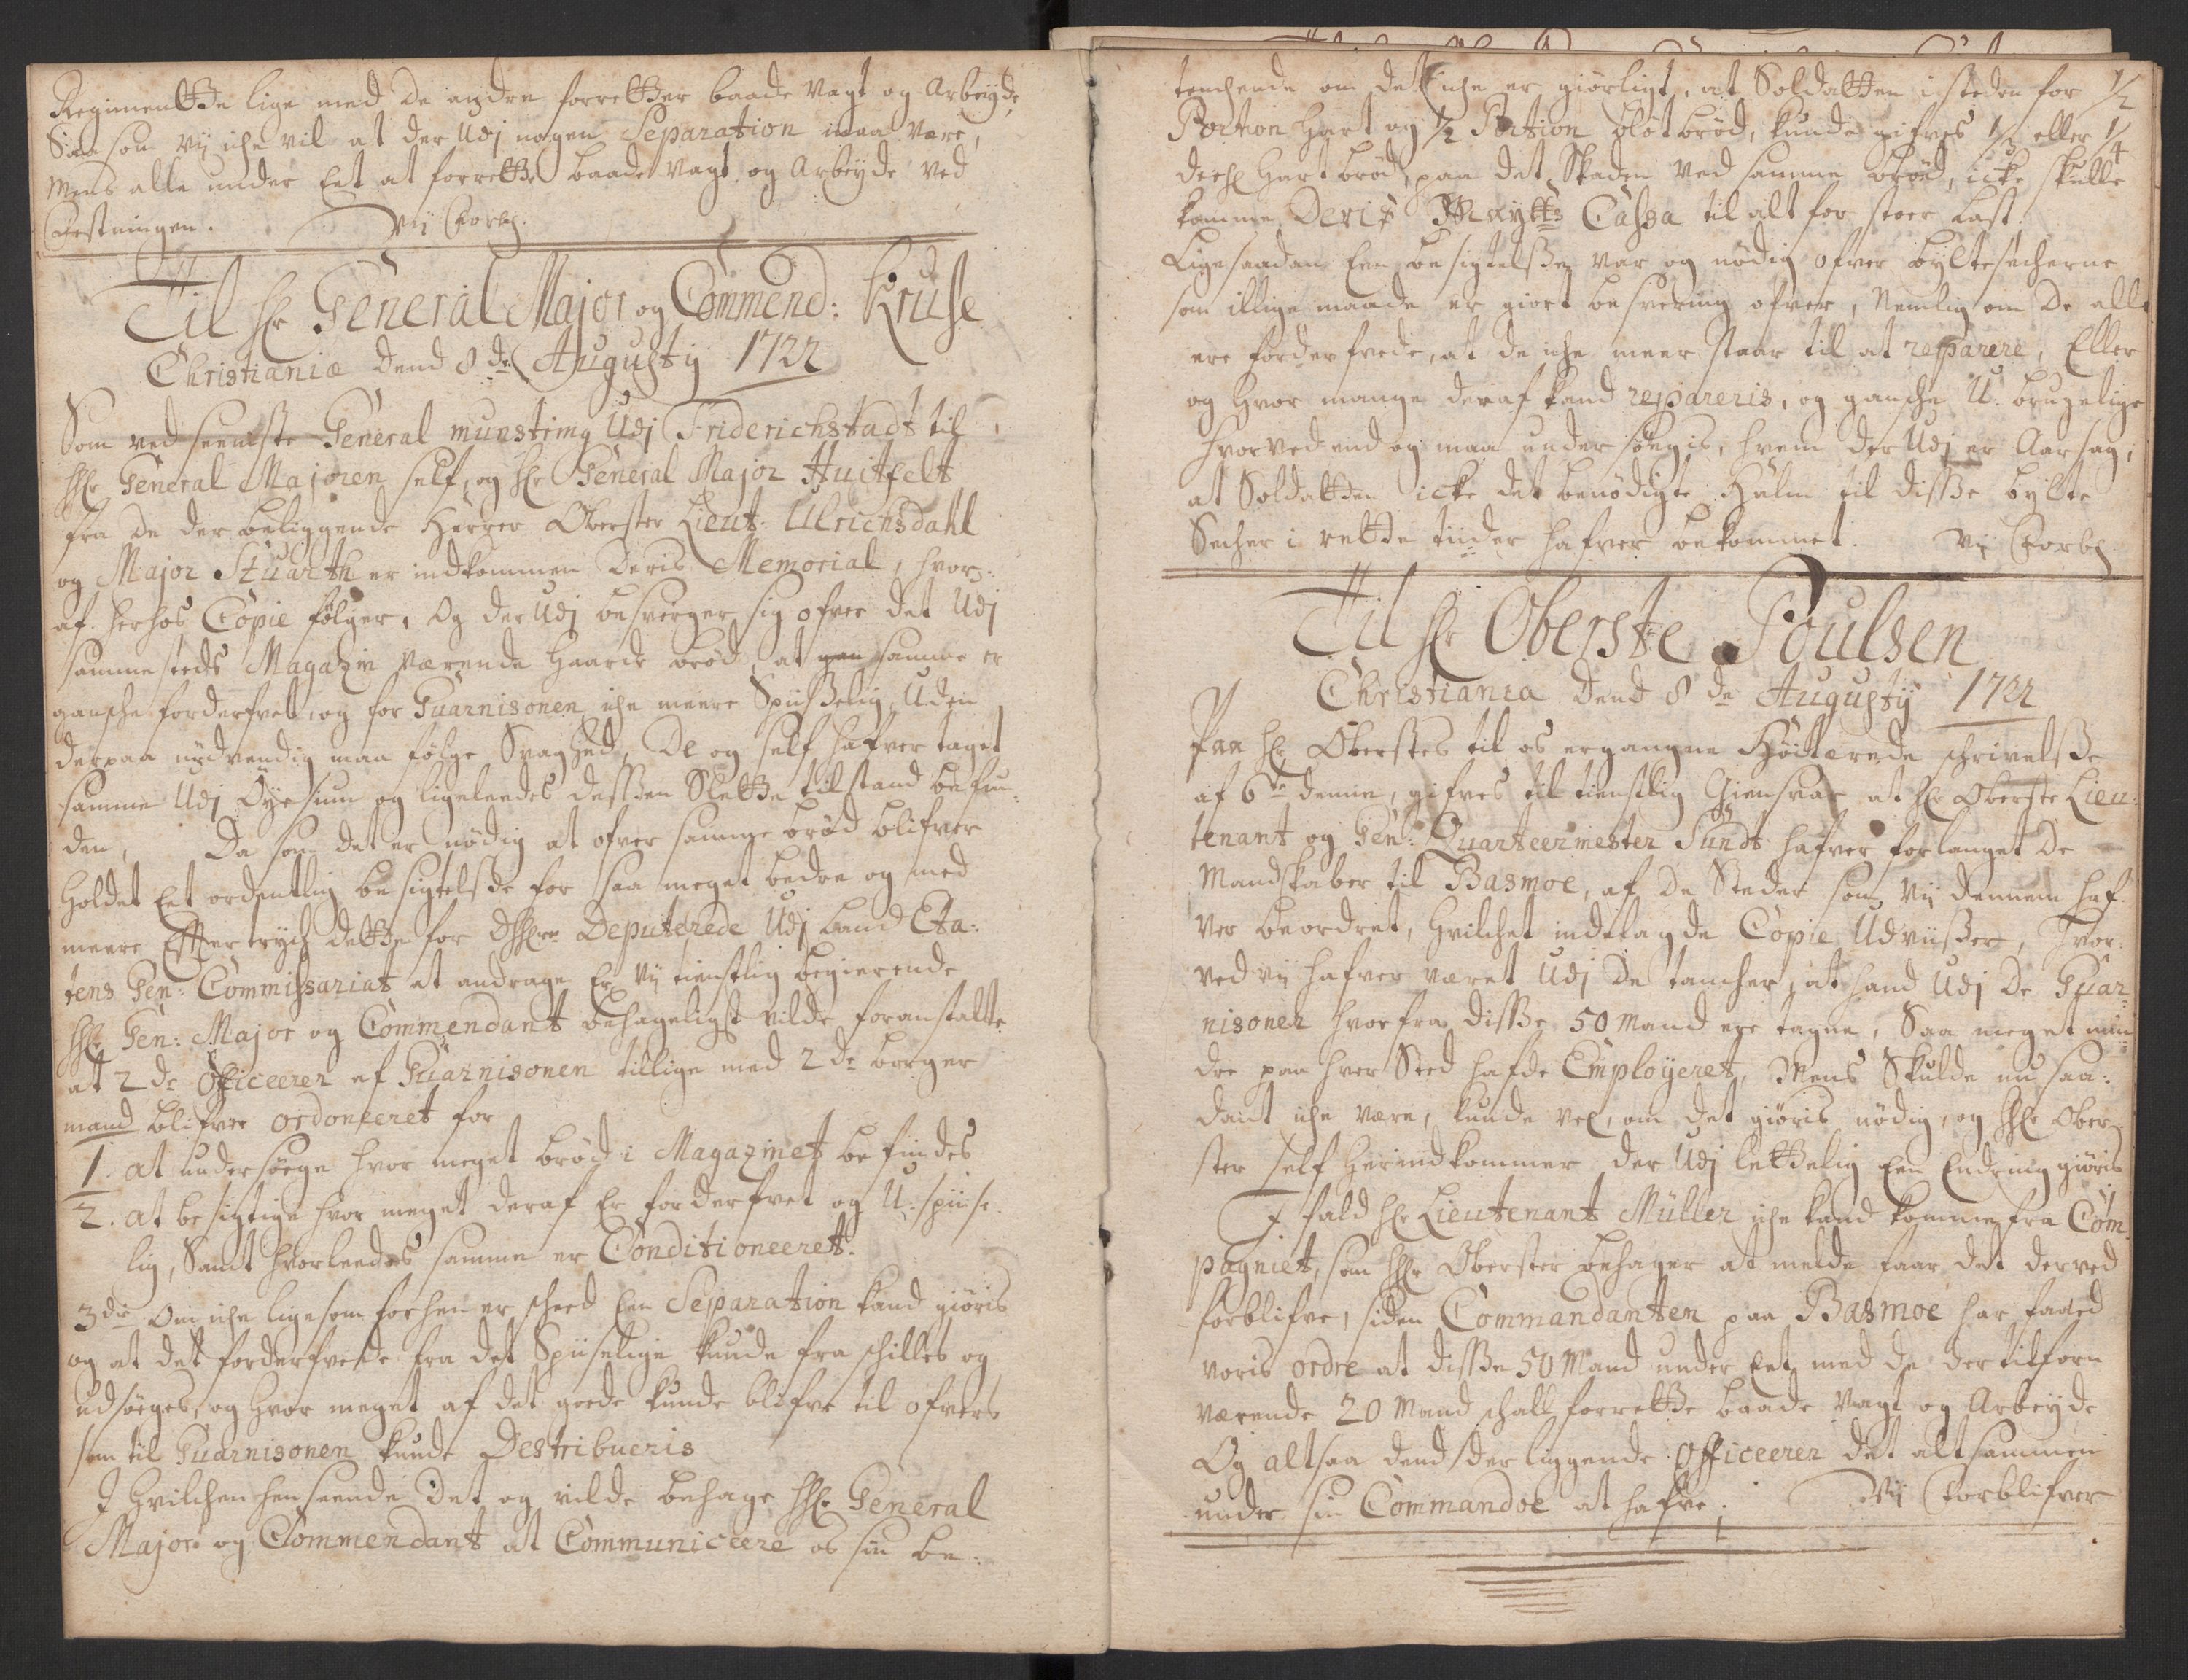 Regimentthe lige med de andre forretther baade Vagt og Arbeyde,
Saa som vij iche vil at der Udj nogen Separation maa være,
Mens alle under Eet at forrette baade Vagt og Arbeyde ved
Festningen. Vij Forbl.
Til Hr General Major og Commend: Kruse
Christianiæ dend 8de Augustij 1722
Som ved seeniste General munstring Udj Friderichstadt til
Hr General Majoren self, og Hr General Major Huitfelt
fra de der beliggende Herrer Oberster Lieut: Ulrichsdahl
og Major Stuarth er indkommen deris Memorial, hvor:
af herhos Copie følger, Og der Udj besverger sig ofver det Udj
sammesteds Magazin værende haarde brød, at samme er
gansche forderfvet, og for Guarnisonen iche meere Spiisselig, Uden
derpaa nødvendig maa følge Svaghed, De og self hafver taget
samme Udj Øyesiun og ligeleedes dessen Slette tilstand befun:
den, Da som det er nødig at ofver samme brød blifver
holdet Eet ordentlig besigtelse for saa meget bedre og med
meere Eftertryck dette for Hrr Deputerede Udj Land Eta:
tens Gen: Commissariat at andrage Er Vij tienstlig begierende
Hr Gen: Major og Commendant behageligst vilde foranstalte
at 2de Officeerer af Guarnisonen tillige med 2de borger
mand blifver ordonneret for
1. at undersøege hvor meget brød i Magazinet befindes
2. at besigtige hvor meget deraf Er forderfvet og U:spiise
lig, Samt hvorleedes samme er Conditioneeret.
3die Om iche ligesom forhen er scheed Een Separation kand giøris
og at det forderfvede fra det Spiiselige kunde fra schilles og
udsøeges, og hvor meget af det goede kunde blifve til ofvers
som til Guarnisonen kunde Destribueris
J hvilchen henseende Det og vilde behage Hr General
Major og Commendant at Communicere os sin be:
tenchende om det iche er giørligt, at Soldatten i steden for 1/2
Portion hart og 1/2 Portion bløt brød, kunde gifves 1/3 eller 1/4
deel hart brød, paa det Skaden ved samme brød, icke skulle
komme Deris Maytts Cassa til alt for stoer Last.
Ligesaadan Een besigtelsse var og nødig ofver byltesecherne
som illige maade er giort besvering ofver, Nemlig om De alle
ere forderfvede, at de iche meer staar til at repparere, Eller
og hvor mange deraf kand repareris, og gansche U:brugelige
hvorved end og maa undersøgis, hvem der Udj er Aarsag,
at Soldatten icke det benødigte Halm til disse bylte
Secher i rette tiider hafver bekommet. Vij Forbl
Til Hr Oberste Poulsen
Christiania dend 8de Augustij 1722
Paa Hr Oberstes til os ergangne Høitærede schrivelsse
af 6te denne, gifves til tienstlig Giensvar at Hr Oberste Lieu:
tenant og Gen: Quarteermester Sundt hafver forlanget De
Mandskaber til Basmoe, af de Steder som vij dennem haf:
ver beordret, hvilchet indelagde Copie Udviisser, hvor:
ved vij hafver været Udj De tancher, at hand Udj De Guar:
nisoner hvorfra disse 50 Mand ere tagne, Saa meget min
dre paa hver Sted hafde Employeret, Mens Skulde nu saa:
dant iche være, kunde vel, om det giøris nødig, og Hr Ober:
ster self herindkommer der Udj lettelig Een Endring giøris
J fald Hr Lieutenant Müller iche kand komme fra Com
pagniet, som Hr Oberster behager at melde faar det derved
forblifve, siden Commandanten paa Basmoe har faaed
voris ordre at disse 50 Mand under Eet med de der tilforn
værende 20 Mand schall forrette baade Vagt og Arbeyde
Og altsaa dend der liggende Officeerer det altsammen
under sin Commandoe at hafve; Vij Forblifver